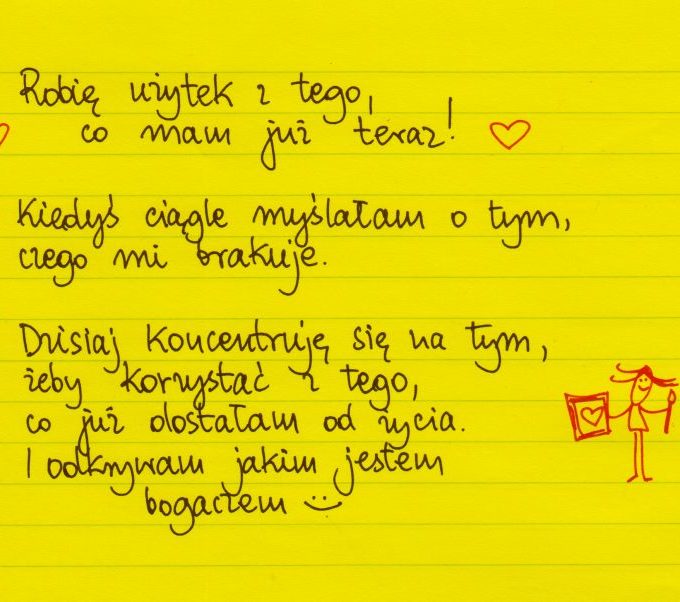 Robię użytek z tego,
co mam już teraz!
Kiedyś ciągle myślałam o tym,
czego mi brakuje.
Dzisiaj koncentruję się na tym,
żeby korzystać z tego,
co już dostałam od życia.
I odkrywam jakim jestem
bogaczem :)